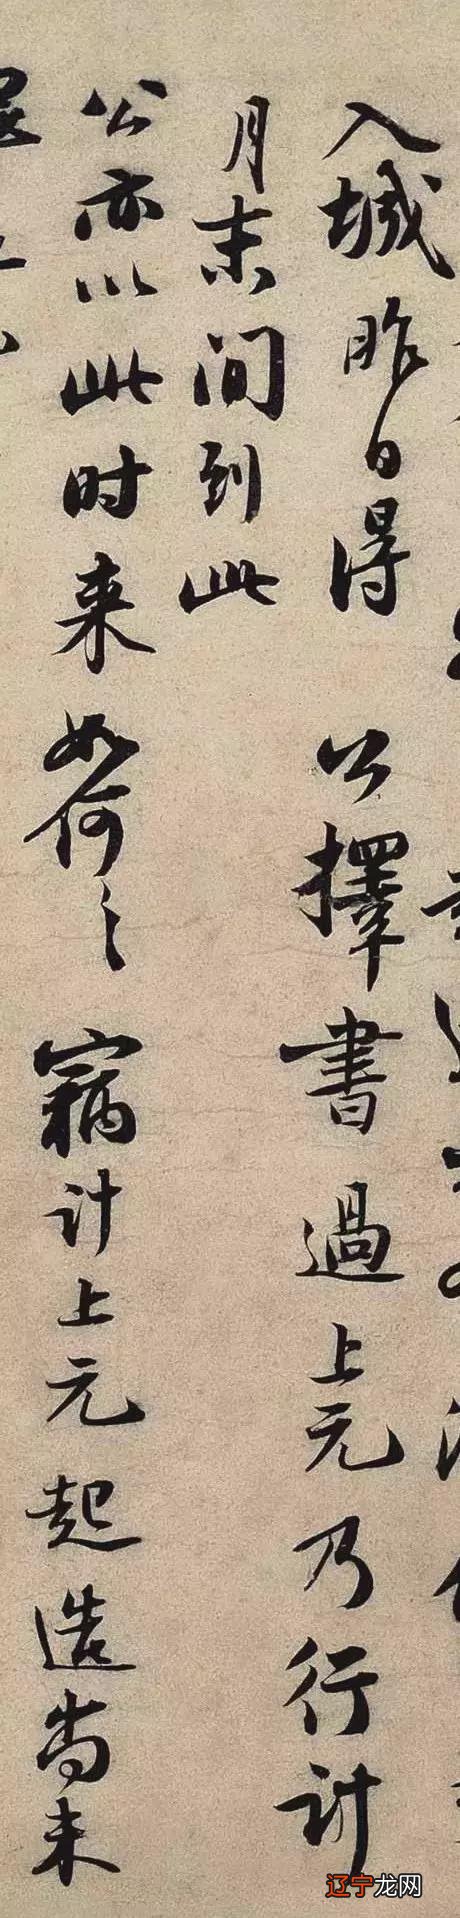 入城昨日得 公擇書過上元乃行計
月末間到此
公亦以此時來如何〻竊計上元起造尚未
辽宁龙网